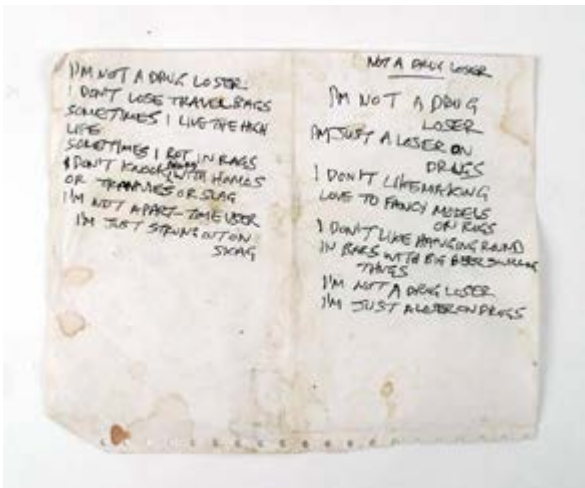 I'M NOT A DRUG LOSER
I DON'T LOSE TRAVEL BAGS
SOMETIMES I LIVE THE HIGH
LIFE
SOMETIMES I ROT IN RAGS
I DON'T KNOCK WITH
OR TRANNIES OR SLAG
I'M NOT A PART-TIME USER
I'M JUST STRUNG OUT ON
SKAG
NOT A DRUG LOSER
I'M NOT A DRUG
LOSER
I'M JUST A LOSER ON
DRUGS
I DON'T LIKE MAKING
LOVE TO FANCY MODELS
ON RUGS
I DON'T LIKE HANGING ROUND
IN BARS WITH BIG BEER SWILLING
THUGS
I'M NOT A DRUG LOSER
I'M JUST A LOSER ON DRUGS